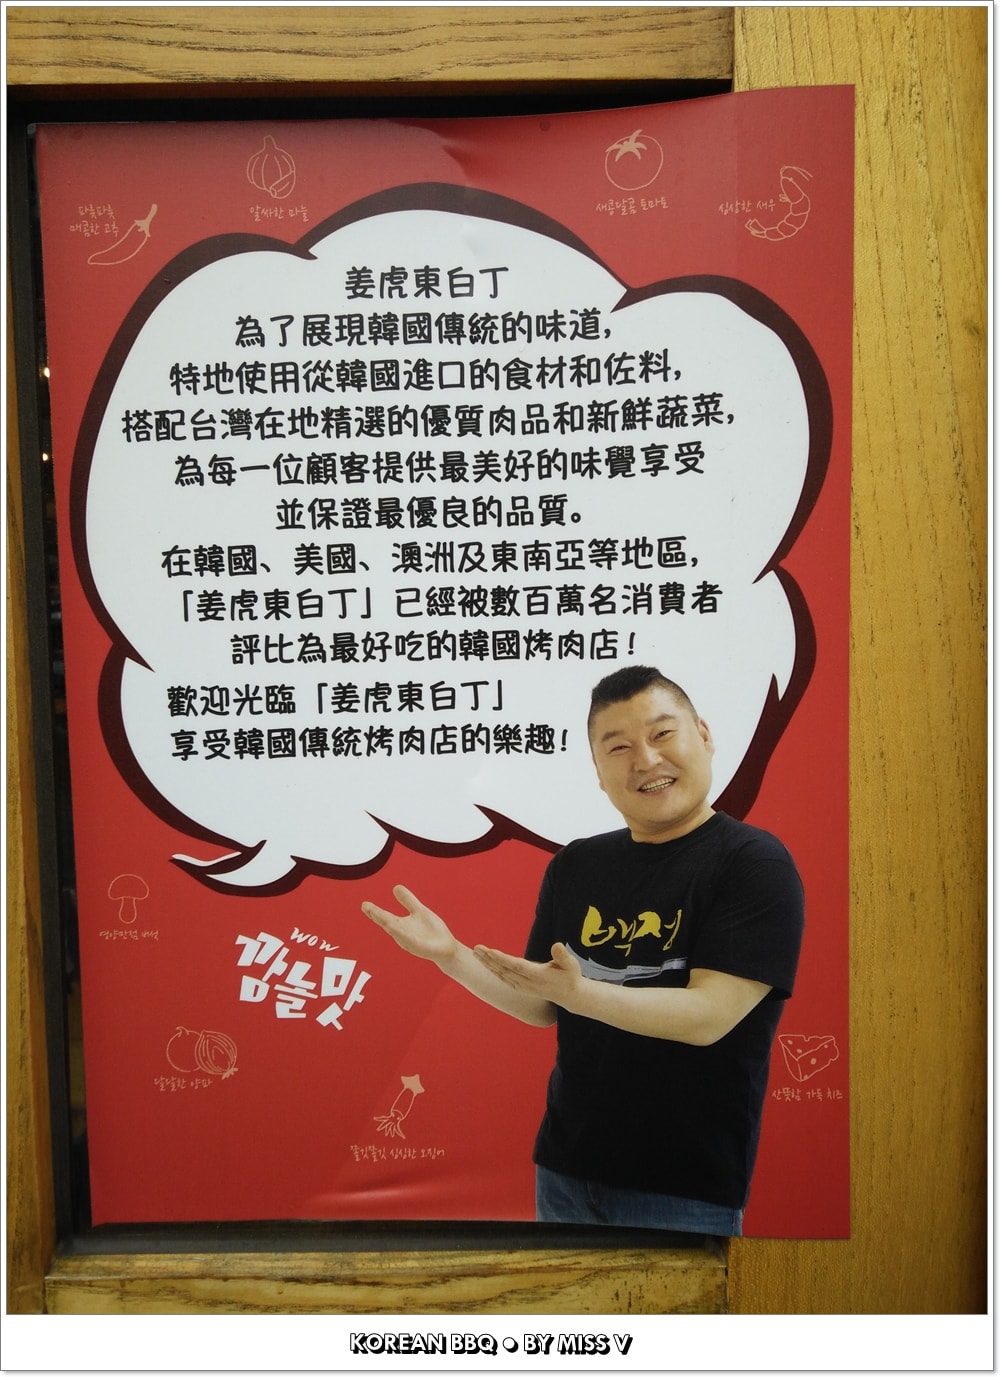 파릇파릇
매콤한 고추
알싸한 마늘
새콤달콤 토마토
싱싱한 새우
姜虎東白丁
為了展現韓國傳統的味道,
特地使用從韓國進口的食材和佐料,
搭配台灣在地精選的優質肉品和新鮮蔬菜,
為每一位顧客提供最美好的味覺享受
並保證最優良的品質。
在韓國、美國、澳洲及東南亞等地區,
「姜虎東白丁」已經被數百萬名消費者
評比為最好吃的韓國烤肉店!
歡迎光臨「姜虎東白丁」
享受韓國傳統烤肉店的樂趣!
백정
영양만점 버섯
WOW
깜놀맛
달달한 양파
쫄깃쫄깃 싱싱한 오징어
산뜻함 가득 치즈
KOREAN BBQ ● BY MISS V